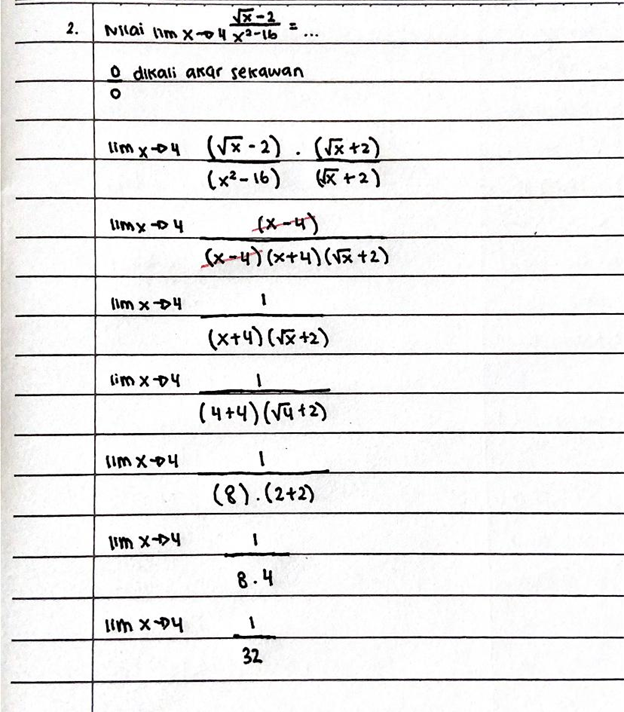 2. Nilai lim x→4 √x-2 / x²-16 = ...
0/0 dikali akar sekawan
lim x→4 (√x - 2) / (x² - 16) . (√x + 2) / (√x + 2)
lim x→4 (x-4) / (x-4)(x+4)(√x+2)
lim x→4 1 / (x+4)(√x+2)
lim x→4 1 / (4+4)(√4+2)
lim x→4 1 / (8).(2+2)
lim x→4 1 / 8.4
lim x→4 1 / 32